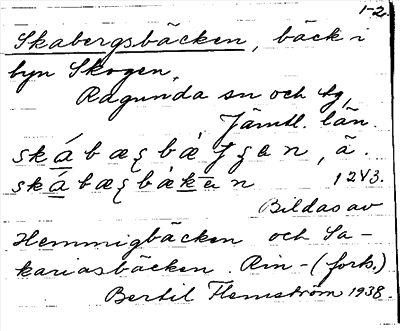 1-2.
Skabergsbäcken, bäck i
byn Skogen,
Ragunda sn och tg,
Jämtl. län.
skábæꞔbæ̀ ꞔan, ä.
skábæꞔbàkan 12V3.
Bildas av
Hemmigbäcken och Sa-
kariasbäcken. Rin- (forts.)
Bertil Flemström 1938.